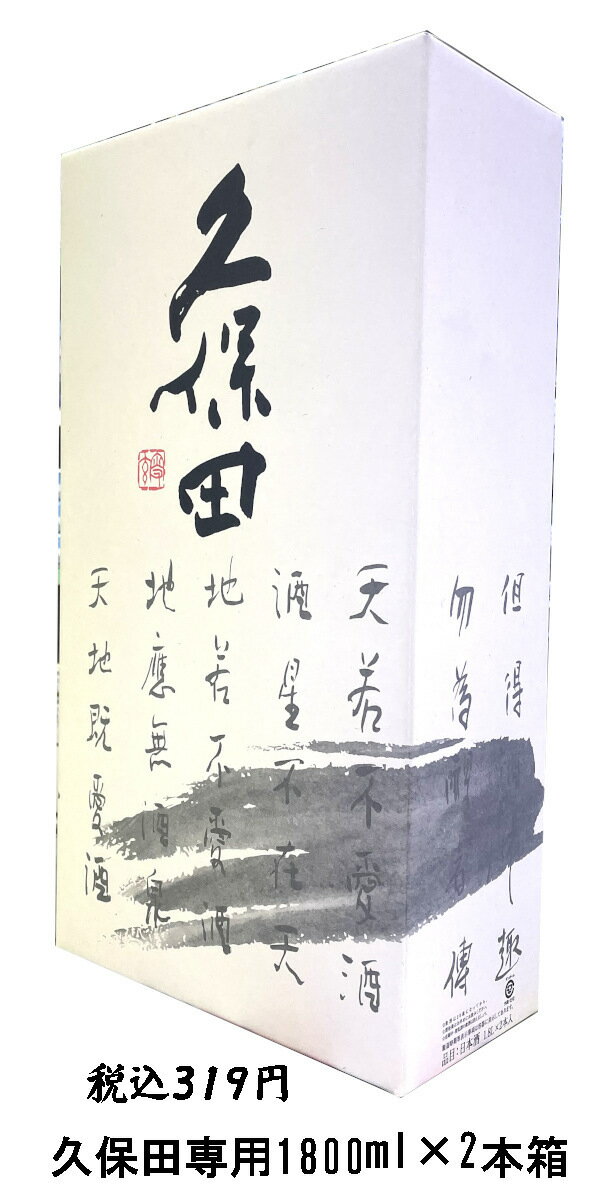 久保田
天若不愛酒
酒星不在天
地若不愛酒
地應無酒泉
天地既愛酒
但得酒中趣
勿為醒者傳
品目:日本酒 1.8L×2本入
税込319円
久保田専用1800ml×2本箱